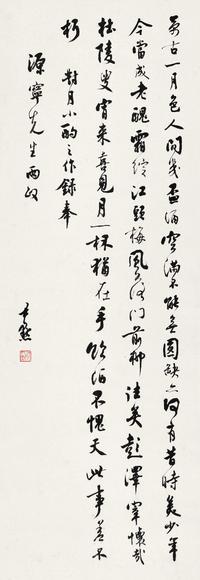 萬古一月色人間幾盃酒空滿不能無圓缺亦何有昔時美少年
今當成老醜霜綻江頭梅風門前柳佳矣彭澤宰懷哉
杜陵叟宵來喜見月一杯猶在手飲酒不愧天此事差不
朽 對月小酌之作錄奉
源寧先生兩政
尹默